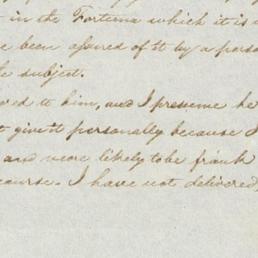 in the Fortuna which it is
been assured of it by a perso
subject.
ored to him, and I presume he
give it personally because I
and were likely to be frank
course. I have not delivered